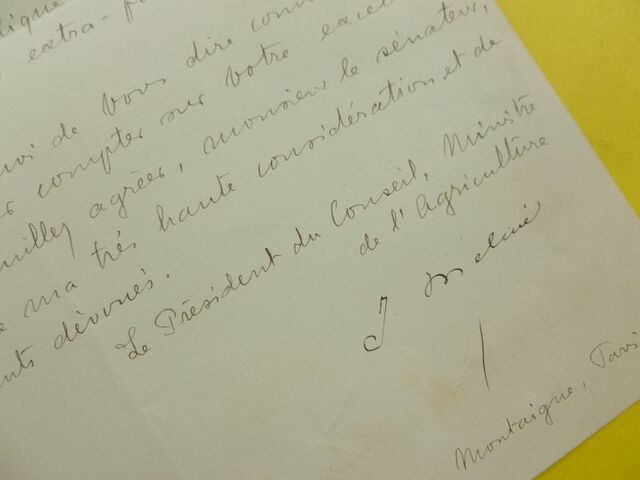 lique
extra-p
moi de vous dire com
compter sur votre excel
uillez agréer, monsieur le sénateur,
e ma très haute considération et de
nts dévoués.
Le Président du Conseil, Ministre
de l'Agriculture
J. Méline
Montaigne, Paris